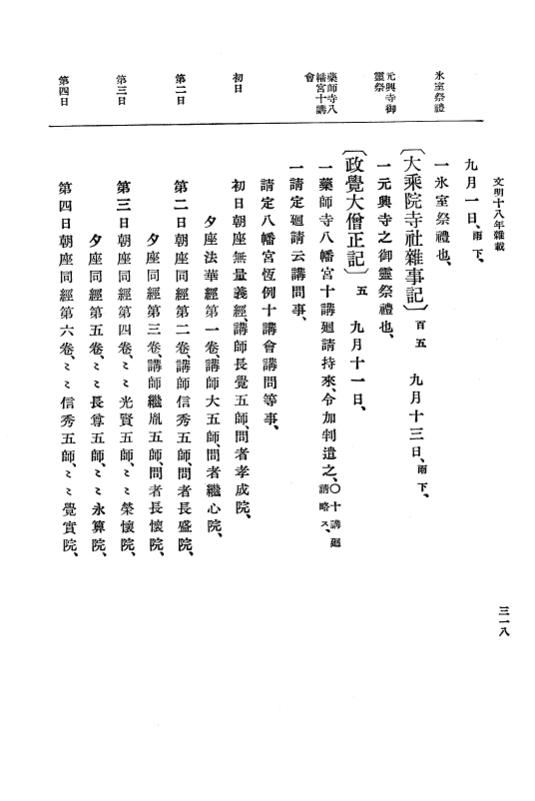 文明十八年雜載
三一八
氷室祭禮
元興寺御
靈祭
藥師寺八
幡宮十講
會
初日
第二日
第三日
第四日
九月一日、雨下、
一氷室祭禮也、
〔大乘院寺社雜事記〕百五 九月十三日、雨下、
一元興寺之御靈祭禮也、
〔政覺大僧正記〕五 九月十一日、
一藥師寺八幡宮十講廻請持來、令加判遣之、〇十講廻請略ス、
一請定廻請云講問事、
請定八幡宮恆例十講會講問等事、
初日朝座無量義經、講師長覺五師、問者孝成院、
夕座法華經第一卷、講師大五師、問者繼心院、
第二日朝座同經第二卷、講師信秀五師、問者長盛院、
夕座同經第三卷、講師繼胤五師、問者長懷院、
第三日朝座同經第四卷、〻〻光賢五師、〻〻榮懷院、
夕座同經第五卷、〻〻長尊五師、〻〻永算院、
第四日朝座同經第六卷、〻〻信秀五師、〻〻覺實院、